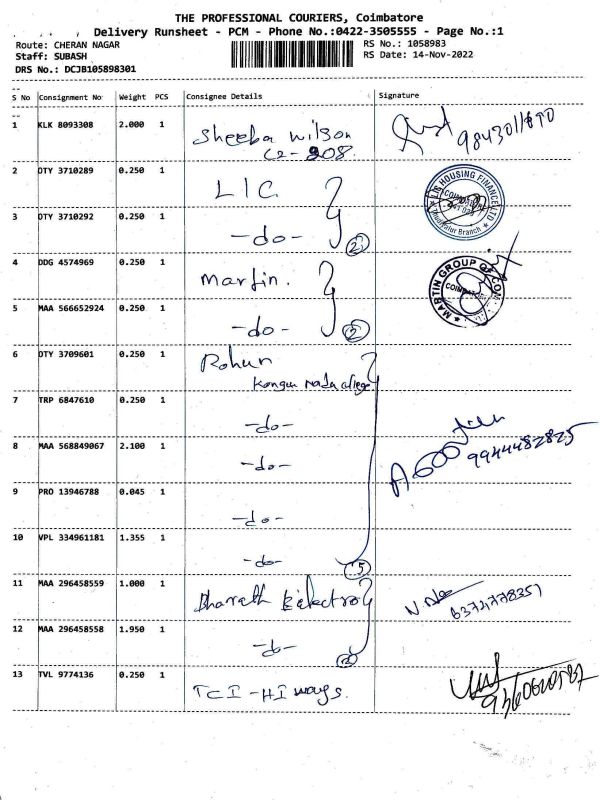 THE PROFESSIONAL COURIERS, Coimbatore
Delivery Runsheet - PCM - Phone No.:0422-3505555 - Page No.:1
Route: CHERAN NAGAR
RS No.: 1058983
Staff: SUBASH
RS Date: 14-Nov-2022
DRS No.: DCJB105898301
S No Consignment No Weight PCS Consignee Details Signature
1 KLK 8093308 2.000 1 Sheeba Wilson
C2-908
2 OTY 3710289 0.250 1 LIC
LIC HOUSING FINANCE LTD
3 OTY 3710292 0.250 1 -do- 2
4 DDG 4574969 0.250 1 Martin.
MARTIN GROUP OF COM
5 MAA 566652924 0.250 1 -do- 2
6 OTY 3709601 0.250 1 Rohun
Kongu
7 TRP 6847610 0.250 1 -do-
8 MAA 568849067 2.100 1 -do- 9944482825
9 PRO 13946788 0.045 1 -do-
10 VPL 334961181 1.355 1 -do- 5
11 MAA 296458559 1.000 1 Bharath Electro
6374778351
12 MAA 296458558 1.950 1 -do- 2
13 TVL 9774136 0.250 1 TCI-HI ways.